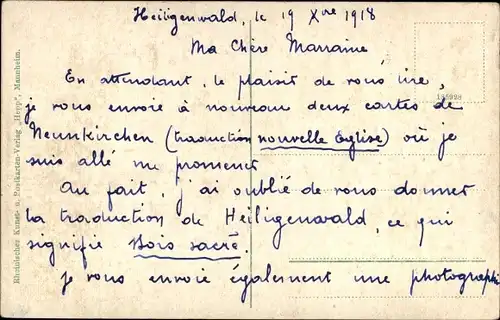 Heiligenwald, le 19 Xbre 1918
Ma Chère Marraine
En attendant, le plaisir de vous lire,
je vous envoie à nouveau deux cartes de
Neunkirchen (traduction nouvelle Église) où je
suis allé me promener
Au fait, j'ai oublié de vous donner
la traduction de Heiligenwald, ce qui
signifie Bois sacré.
je vous envoie également une photographie
Rheinischer Kunst- u. Postkarten-Verlag „Hepp", Mannheim.